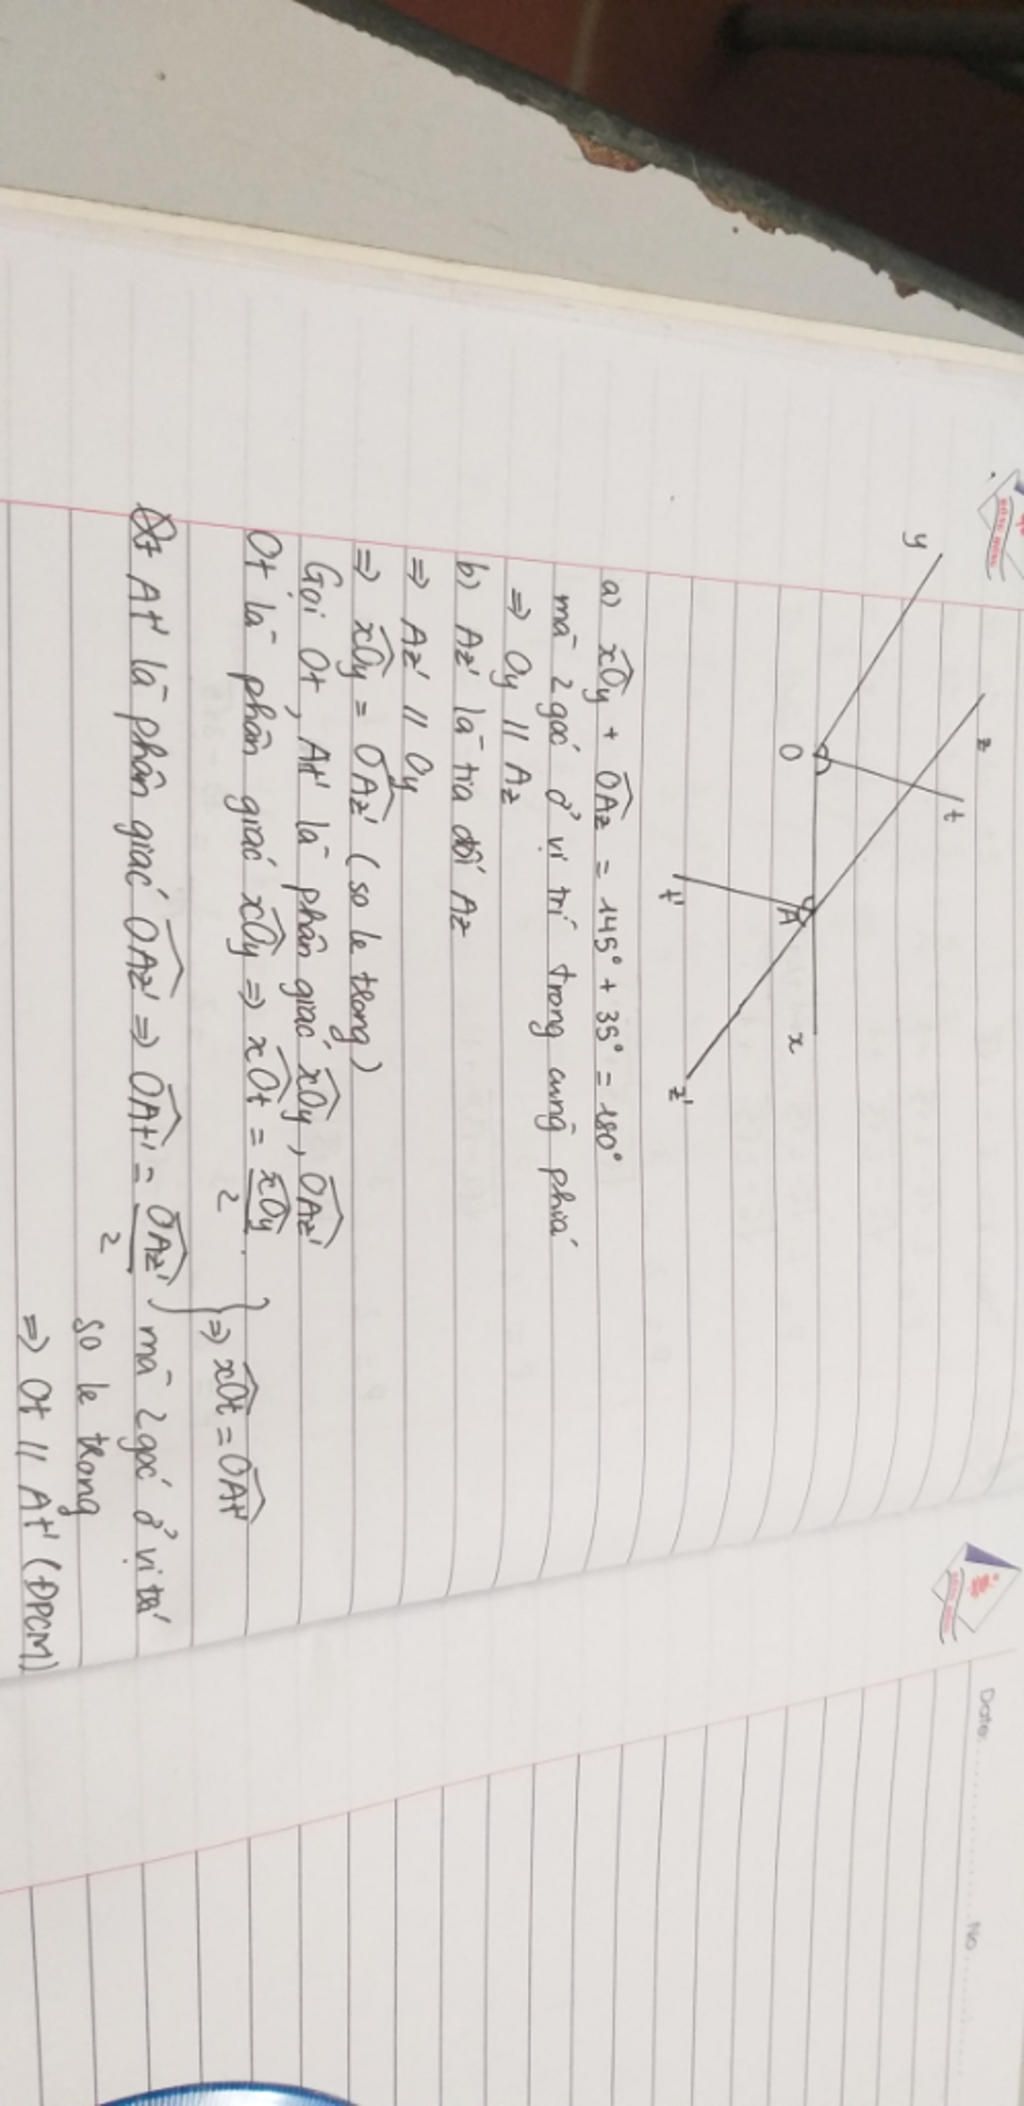 y
z
t
O
A
x
t'
z'
a) xÔy + OÂz = 145° + 35° = 180°
mà 2 góc ở vị trí trong cùng phía
⇒ Oy // Az
b) Az' là tia đối Az
⇒ Az' // Oy
⇒ xÔy = OÂz' (so le trong)
Gọi Ot, At' là phân giác xÔy, OÂz'
Ot là phân giác xÔy ⇒ xÔt = xÔy / 2
⇒ xÔt = OÂt'
At' là phân giác OÂz' ⇒ OÂt' = OÂz' / 2 mà 2 góc ở vị trí
so le trong
⇒ Ot // At' (ĐPCM)
Date: No